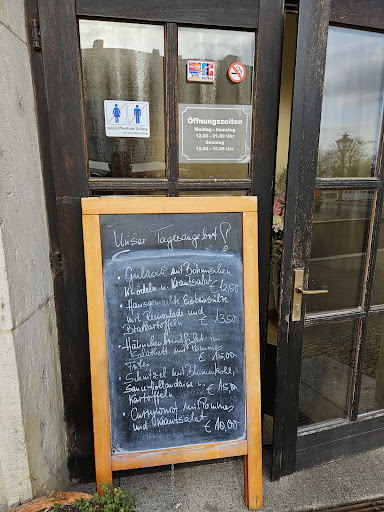 Öffnungszeiten
Montag - Samstag
12.00 - 21.00 Uhr
Sonntag
12.00 - 15.00 Uhr
Unser Tagesangebot!
• Gulasch mit Böhmischen
Knödeln u. Krautsalat € 12,50
• Hausgemachte Eisbeinsülze
mit Remoulade und
Bratkartoffeln € 13,50
• Hähnchenbrustfilet im
mit Pommes
Frites € 15,00
• Schnitzel mit Blumenkohl,
Sauce Hollandaise u.
Kartoffeln € 15,00
• Currywurst mit Pommes
und Krautsalat € 10,00